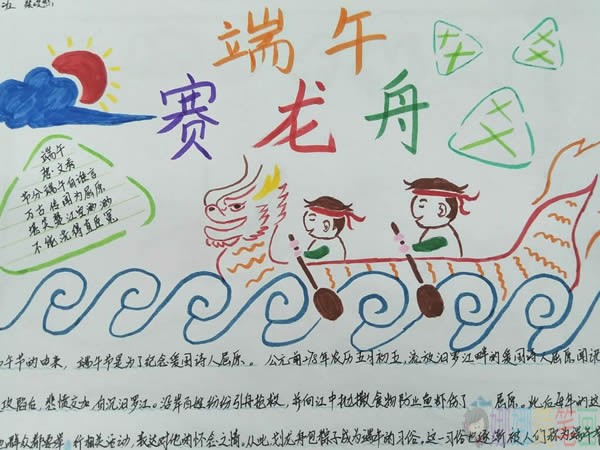 班
端午
赛龙舟
端午
唐 文秀
节分端午自谁言
万古传闻为屈原
堪笑楚江空渺渺
不能洗得直臣冤
午节的由来，端午节是为了纪念爱国诗人屈原。公元前278年农历五月初五，流放汨罗江畔的爱国诗人屈原闻讯
攻陷后，悲愤交加，自沉汨罗江。沿岸百姓纷纷引舟抢救，并向江中抛撒食物防止鱼虾伤了 屈原，此后每年的这
群众都要举行相关活动，表达对他的怀念之情。从此划龙舟包粽子成为端午的习俗。这一习俗也逐渐被人们称为端午节